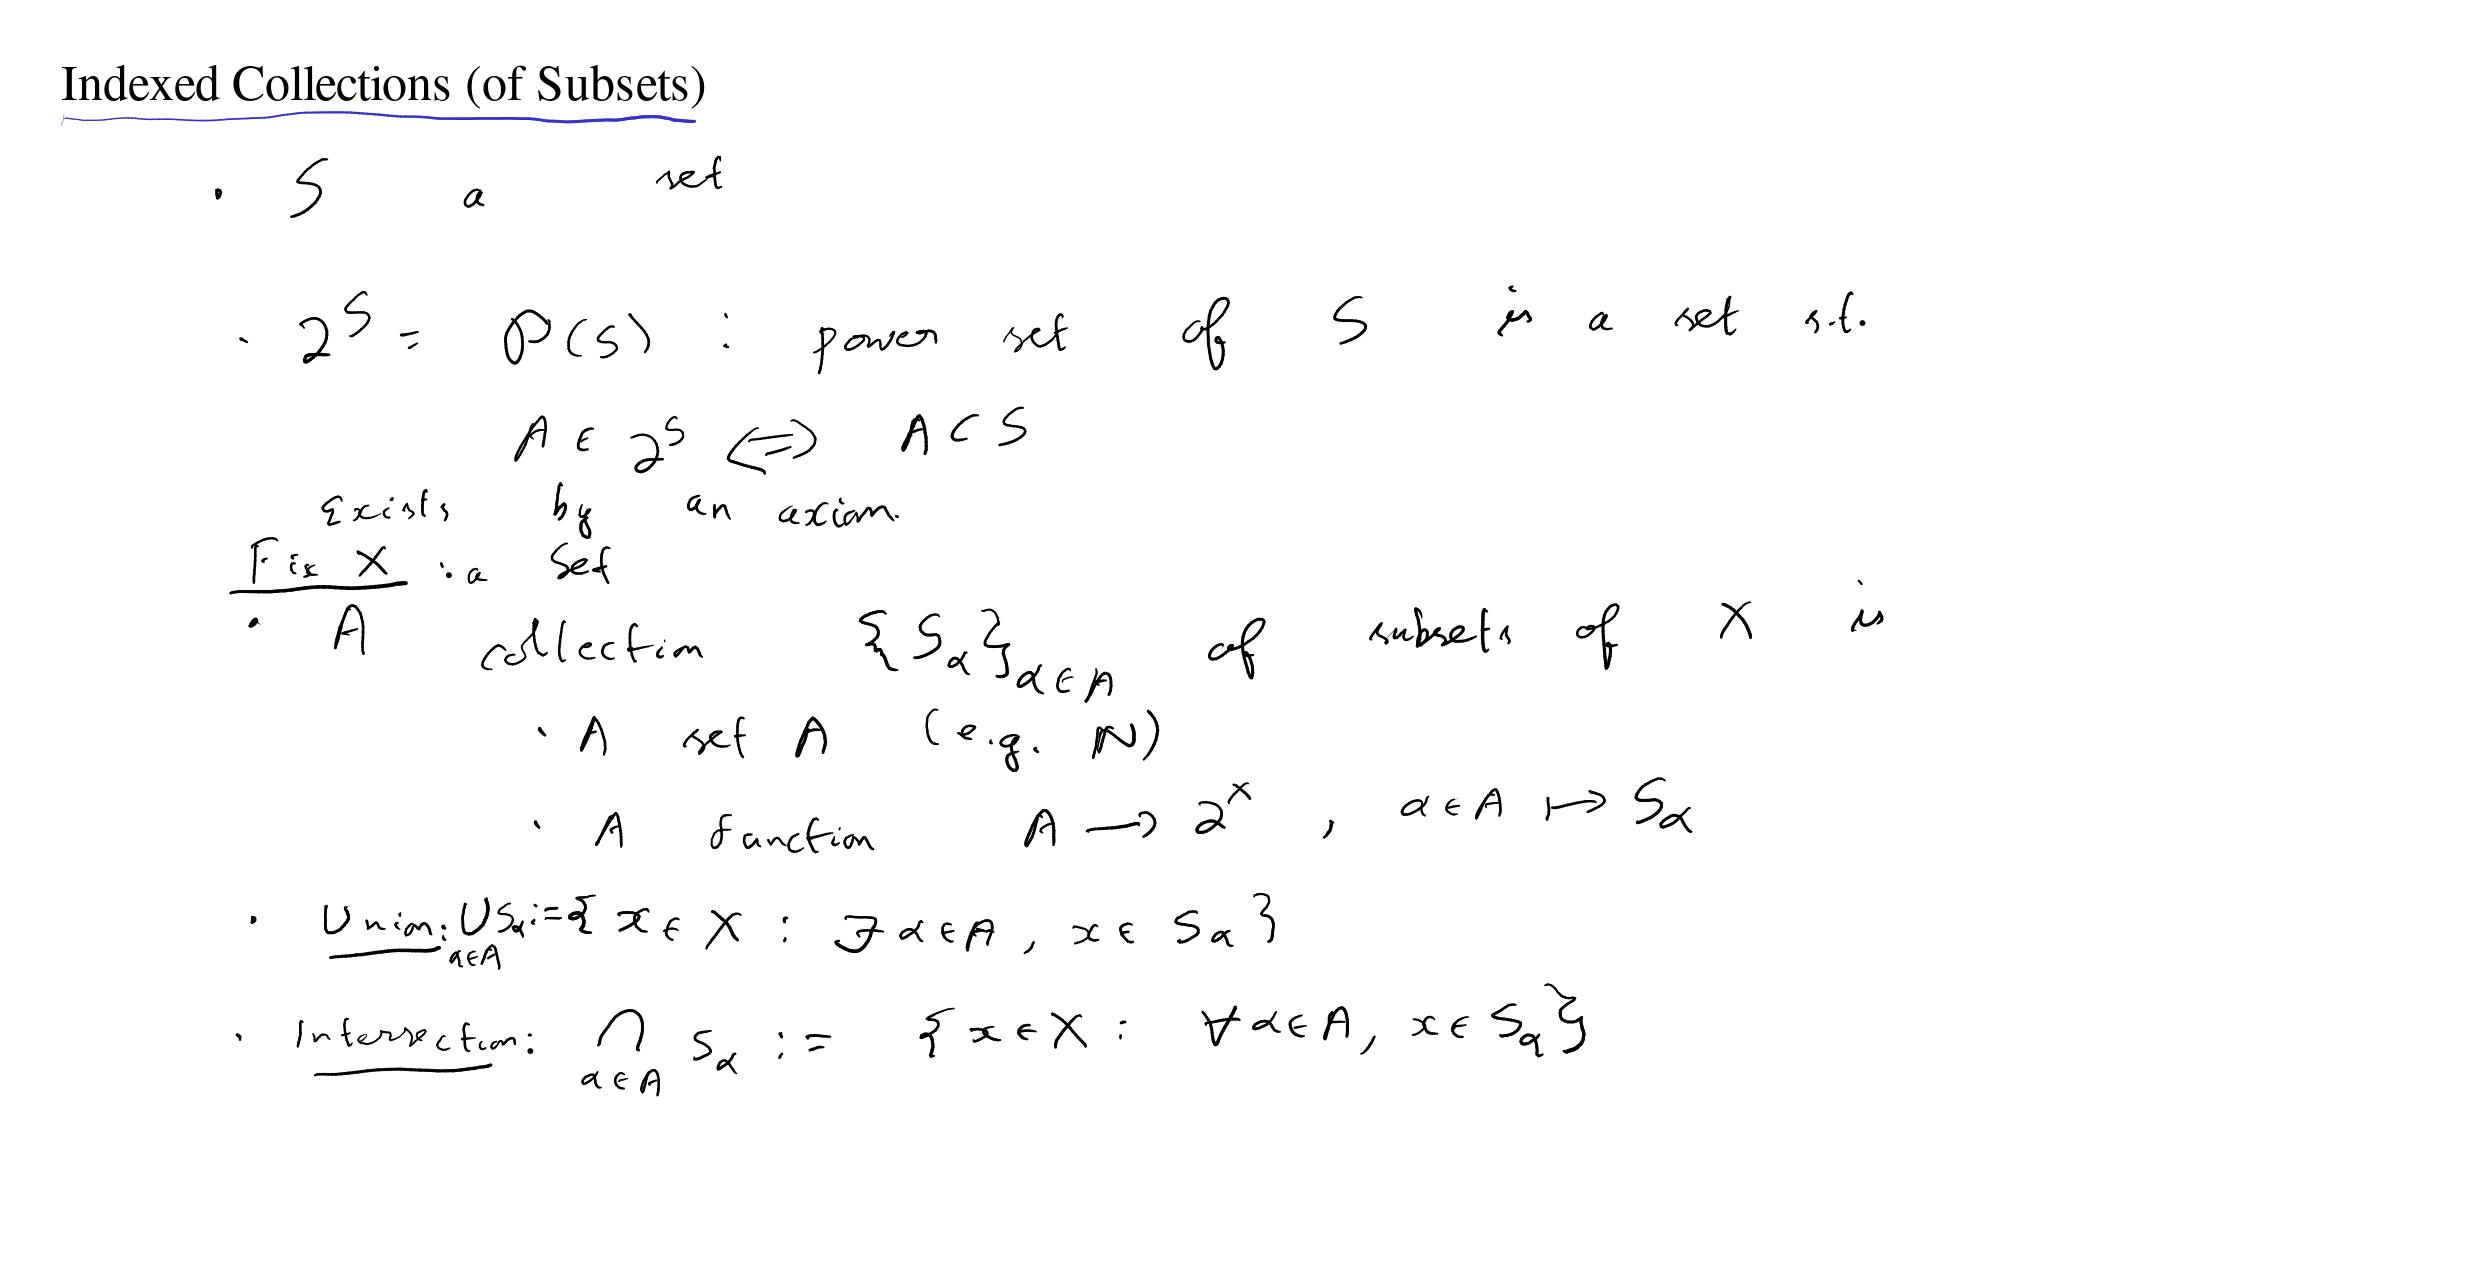 Indexed Collections (of Subsets)
· S a set
· 2^S = P(S) : power set of S is a set s.t.
A ∈ 2^S ⟺ A ⊂ S
Exists by an axiom.
Fix X : a Set
· A collection {S_α}_{α∈A} of subsets of X is
· A set A (e.g. ℕ)
· A function A → 2^X , α ∈ A ↦ S_α
· Union: ∪_{α∈A} S_α := { x ∈ X : ∃ α ∈ A , x ∈ S_α }
· Intersection: ∩_{α∈A} S_α := { x ∈ X : ∀ α ∈ A, x ∈ S_α }